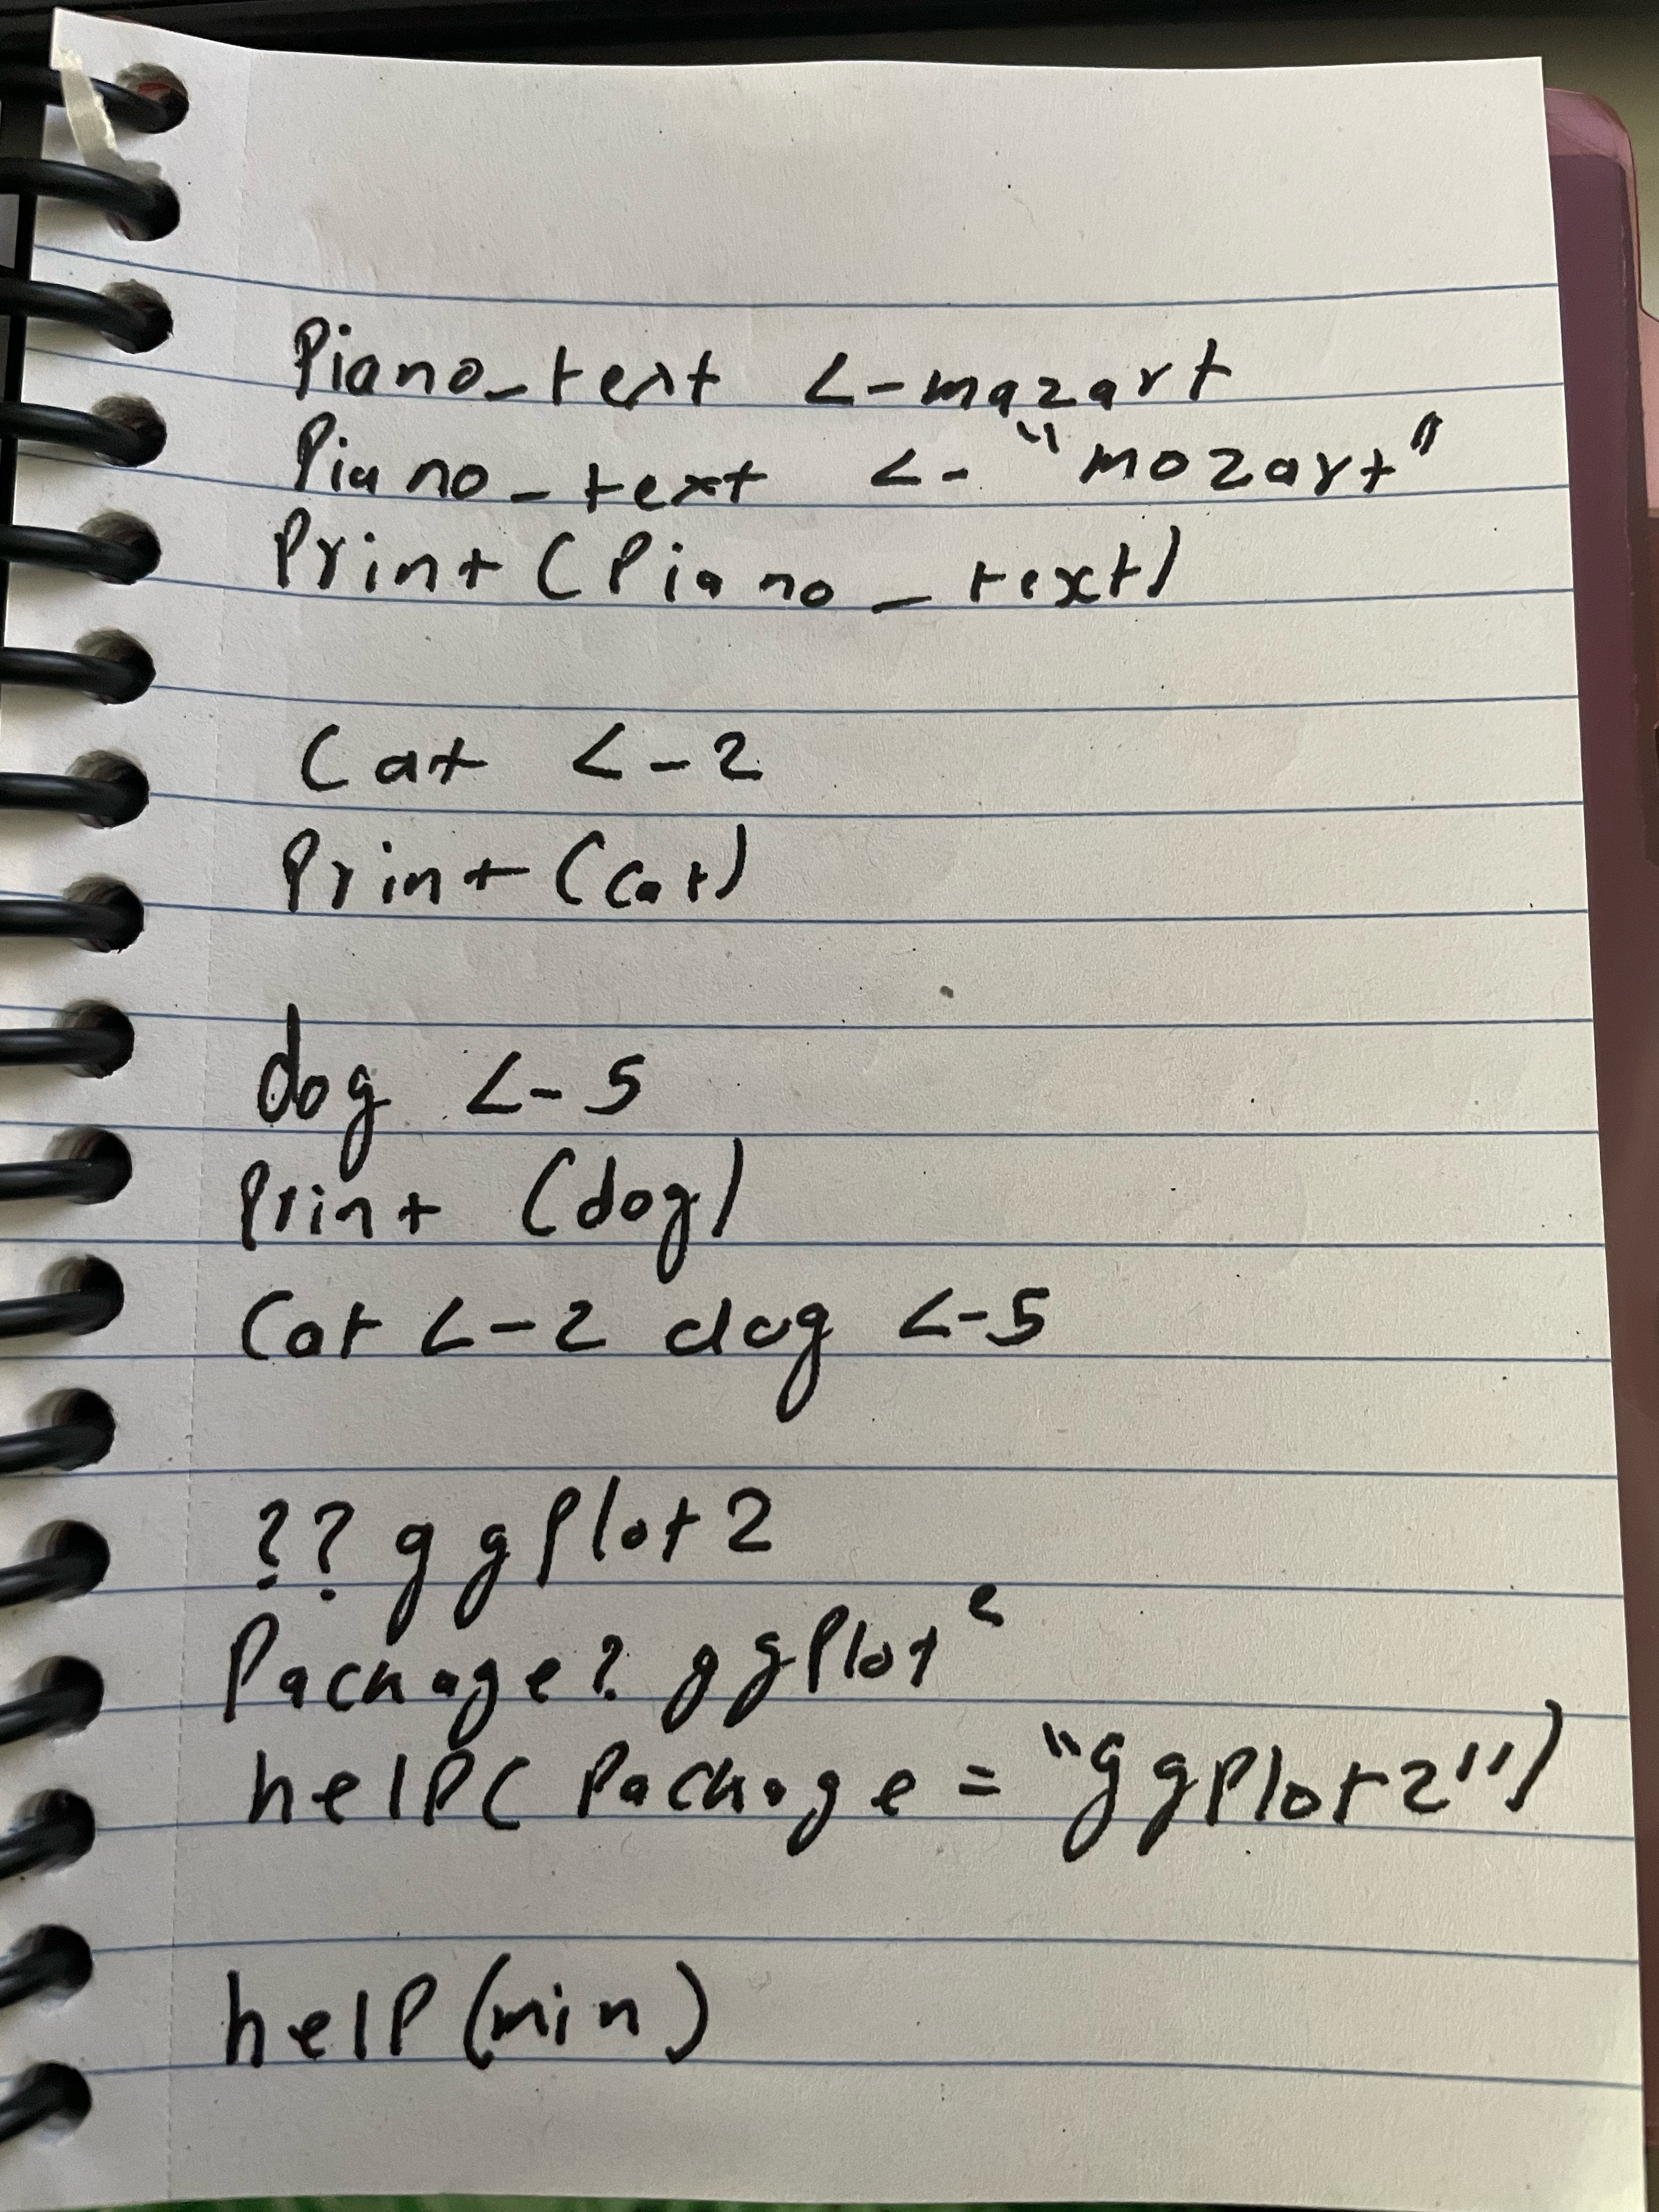 Piano_text <-mazart
Piano_text <- "mozart"
Print(Piano_text)
Cat <-2
Print(cat)
dog <-5
Print (dog)
Cat <-2 dog <-5
??ggPlot2
Package? ggPlot2
help(Package = "ggPlot2")
help(min)